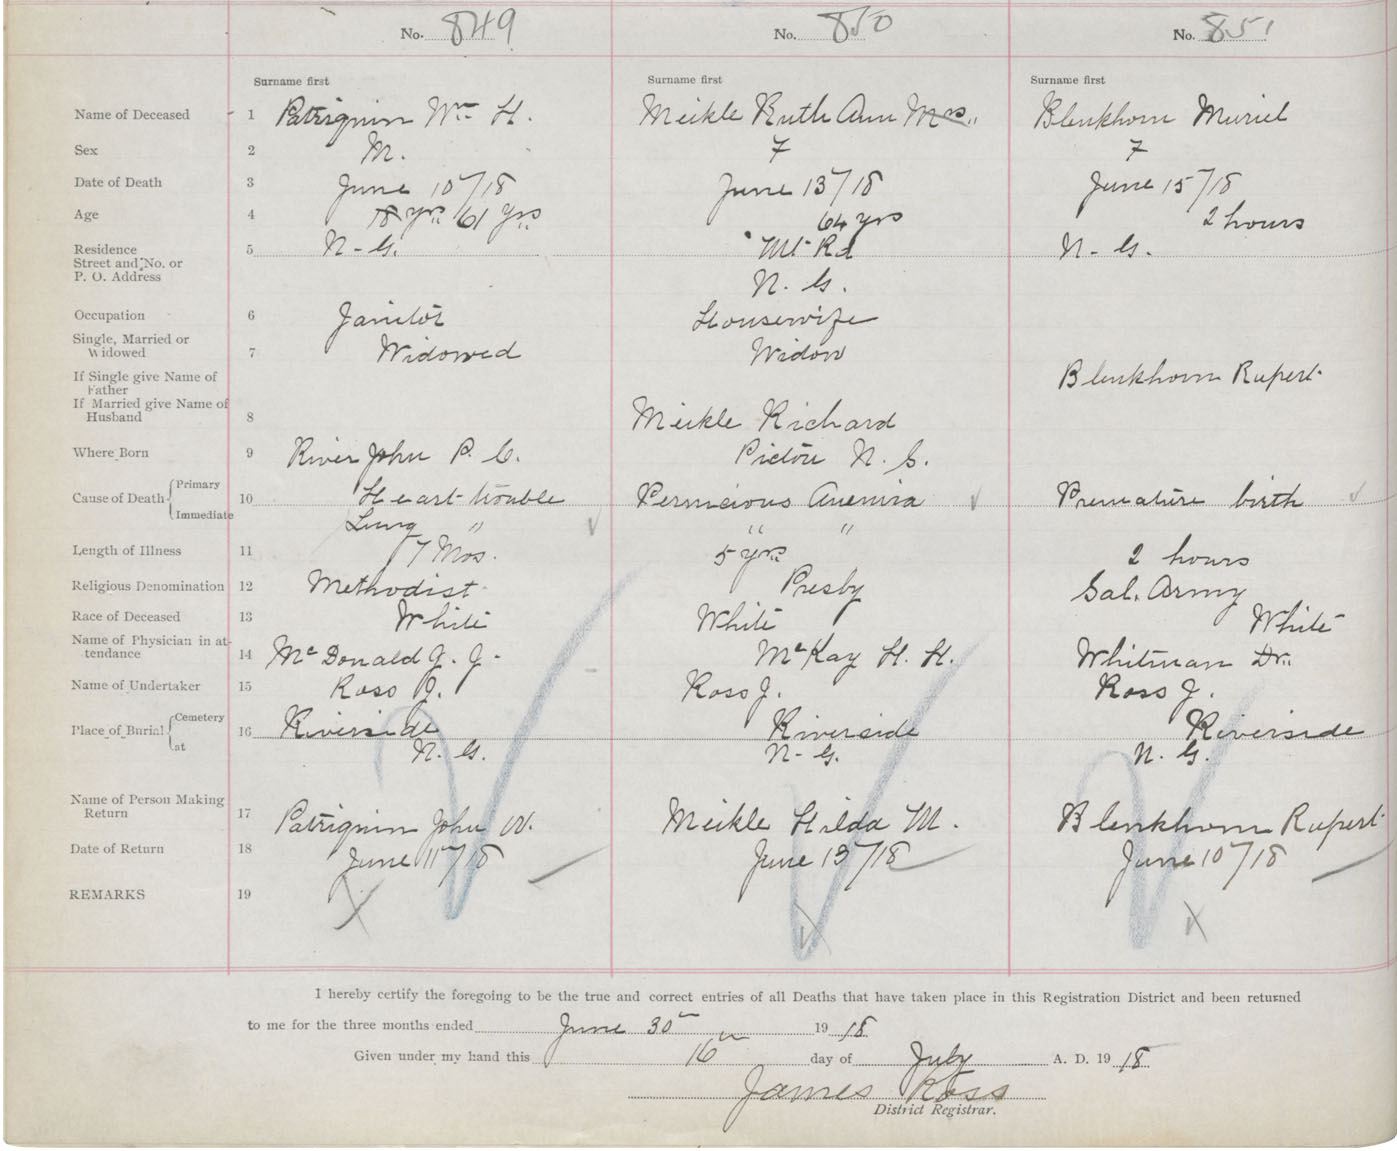 No. 849 No. 850 No. 851
Surname first Surname first Surname first
Name of Deceased 1 Patriquin Wm H. Meikle Ruth Ann Mrs. Blenkhorn Muriel
Sex 2 M. F F
Date of Death 3 June 10/18 June 13/18 June 15/18
Age 4 18 yrs 61 yrs 64 yrs 2 hours
Residence 5 N. G. Mt Rd N. G.
Street and No. or
P. O. Address N. G.
Occupation 6 Janitor Housewife
Single, Married or
Widowed 7 Widowed Widow
If Single give Name of
Father Blenkhorn Rupert
If Married give Name of
Husband 8 Meikle Richard
Where Born 9 River John P. C. Pictou N. S.
Cause of Death Primary 10 Heart trouble Pernicious Anemia Premature birth
Immediate Lung " " "
Length of Illness 11 7 Mos. 5 yrs 2 hours
Religious Denomination 12 Methodist Presby Sal. Army
Race of Deceased 13 White White White
Name of Physician in at-
tendance 14 McDonald J. J. McKay H. H. Whitman Dr.
Name of Undertaker 15 Ross J. Ross J. Ross J.
Place of Burial Cemetery 16 Riverside Riverside Riverside
at N. G. N. G. N. G.
Name of Person Making
Return 17 Patriquin John W. Meikle Hilda M. Blenkhorn Rupert
Date of Return 18 June 11/18 June 19/18 June 10/18
REMARKS 19
I hereby certify the foregoing to be the true and correct entries of all Deaths that have taken place in this Registration District and been returned
to me for the three months ended June 30th 1918
Given under my hand this 16th day of July A. D. 1918
James Ross
District Registrar.